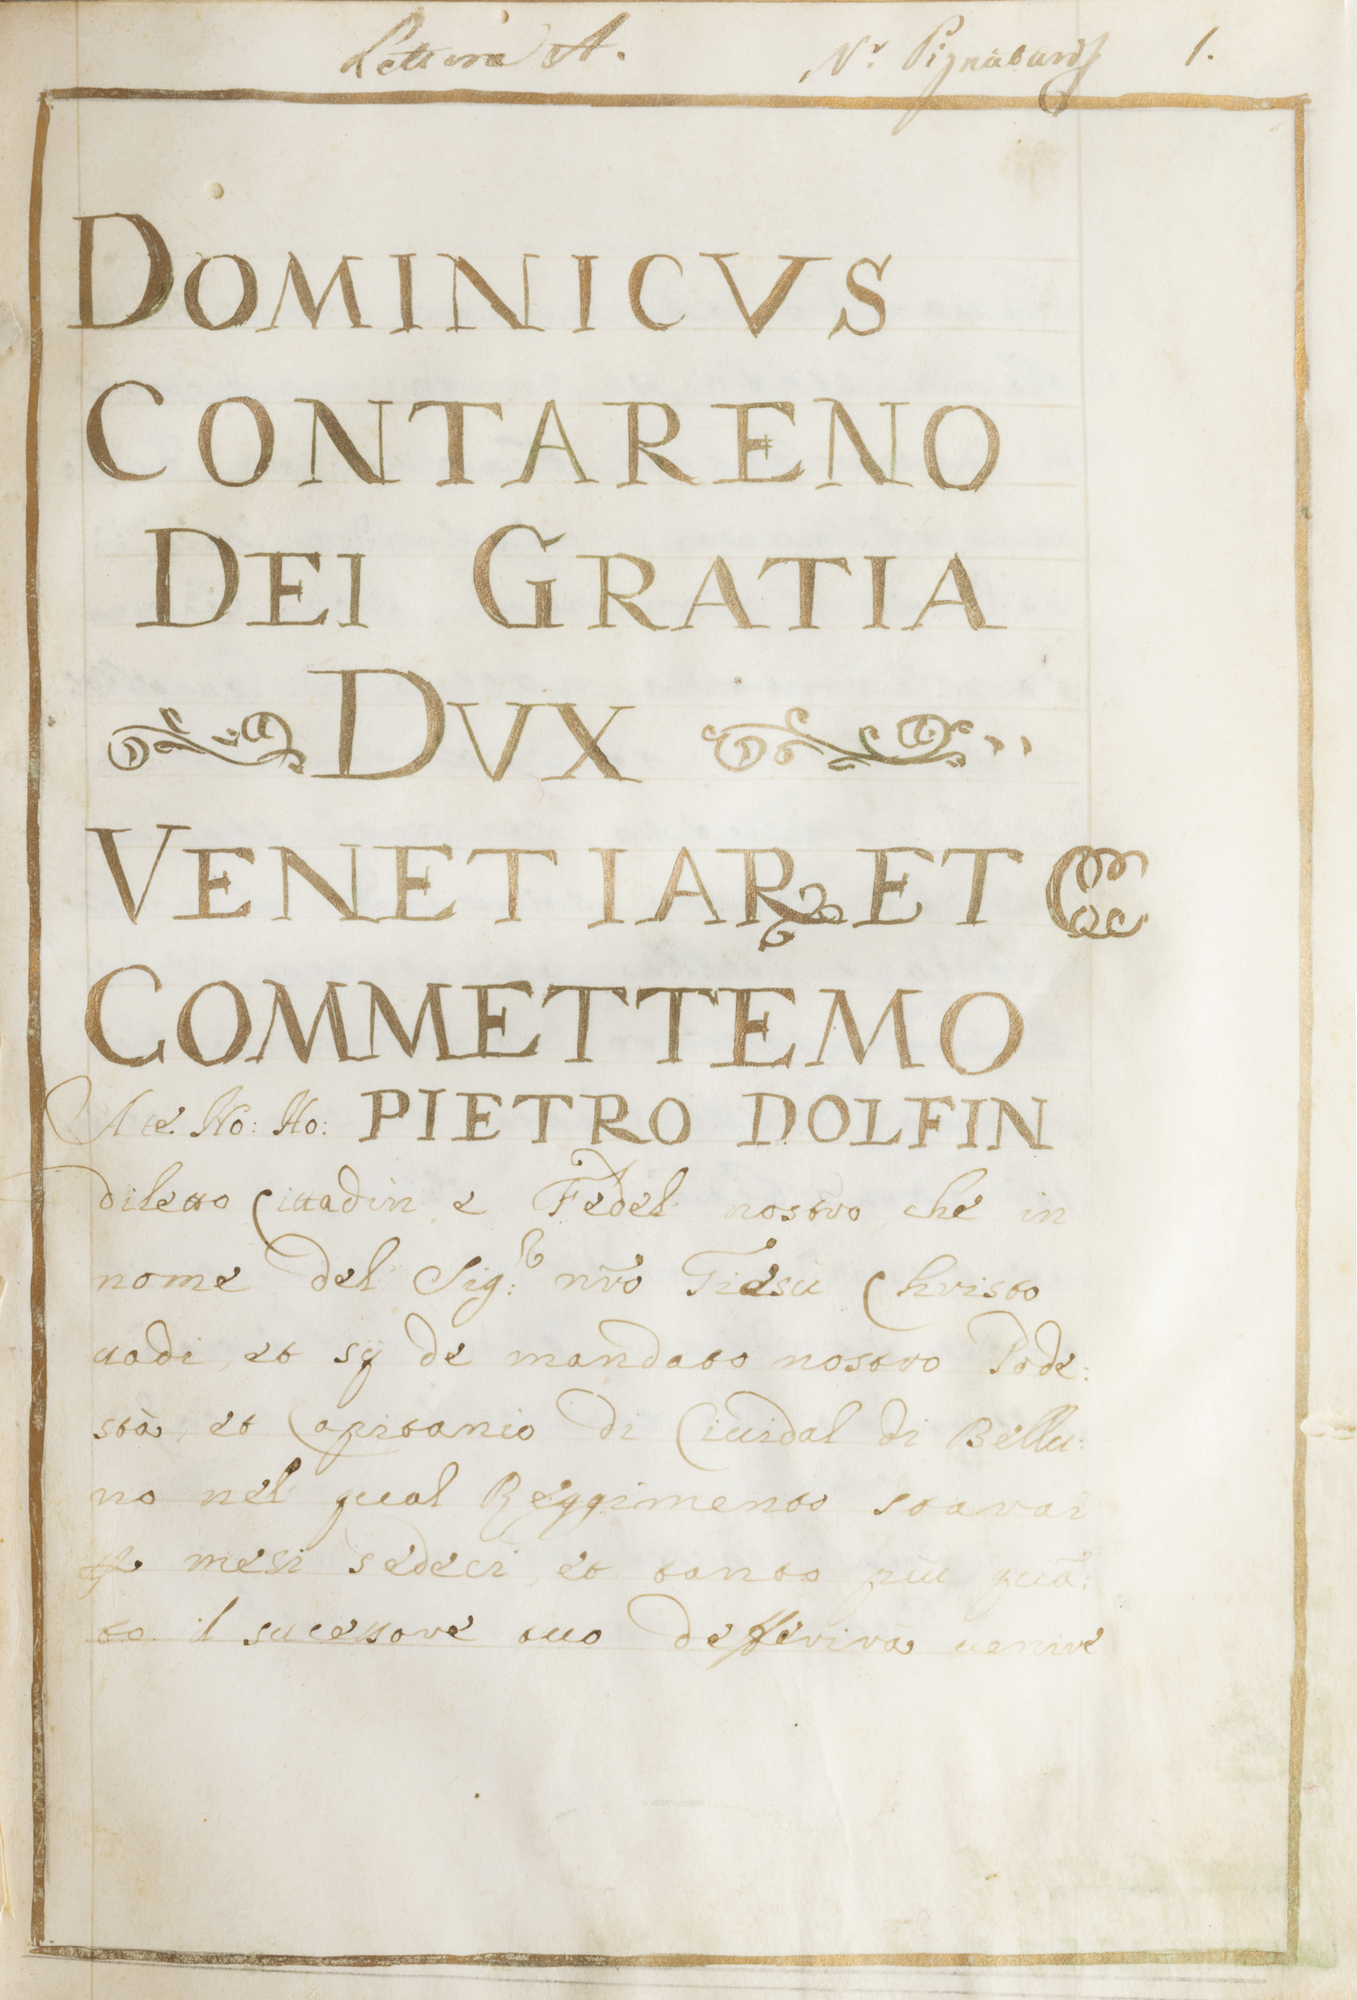 Lettera A. Nr. 1.
DOMINICVS
CONTARENO
DEI GRATIA
DVX
VENETIAR ET C
COMMETTEMO
A te. No: Ho: PIETRO DOLFIN
diletto Cittadin, e Fedel nostro, che in
nome del Sig:r nr̃o Giesù Christo
uadi, et sÿ de mandato nostro Pode:
stà, et Capitanio di Ciuidal di Bellu:
no nel qual Reggimento starai
p mesi sedeci, et tanto più quã:
to il sucessore tuo defferirà uenire